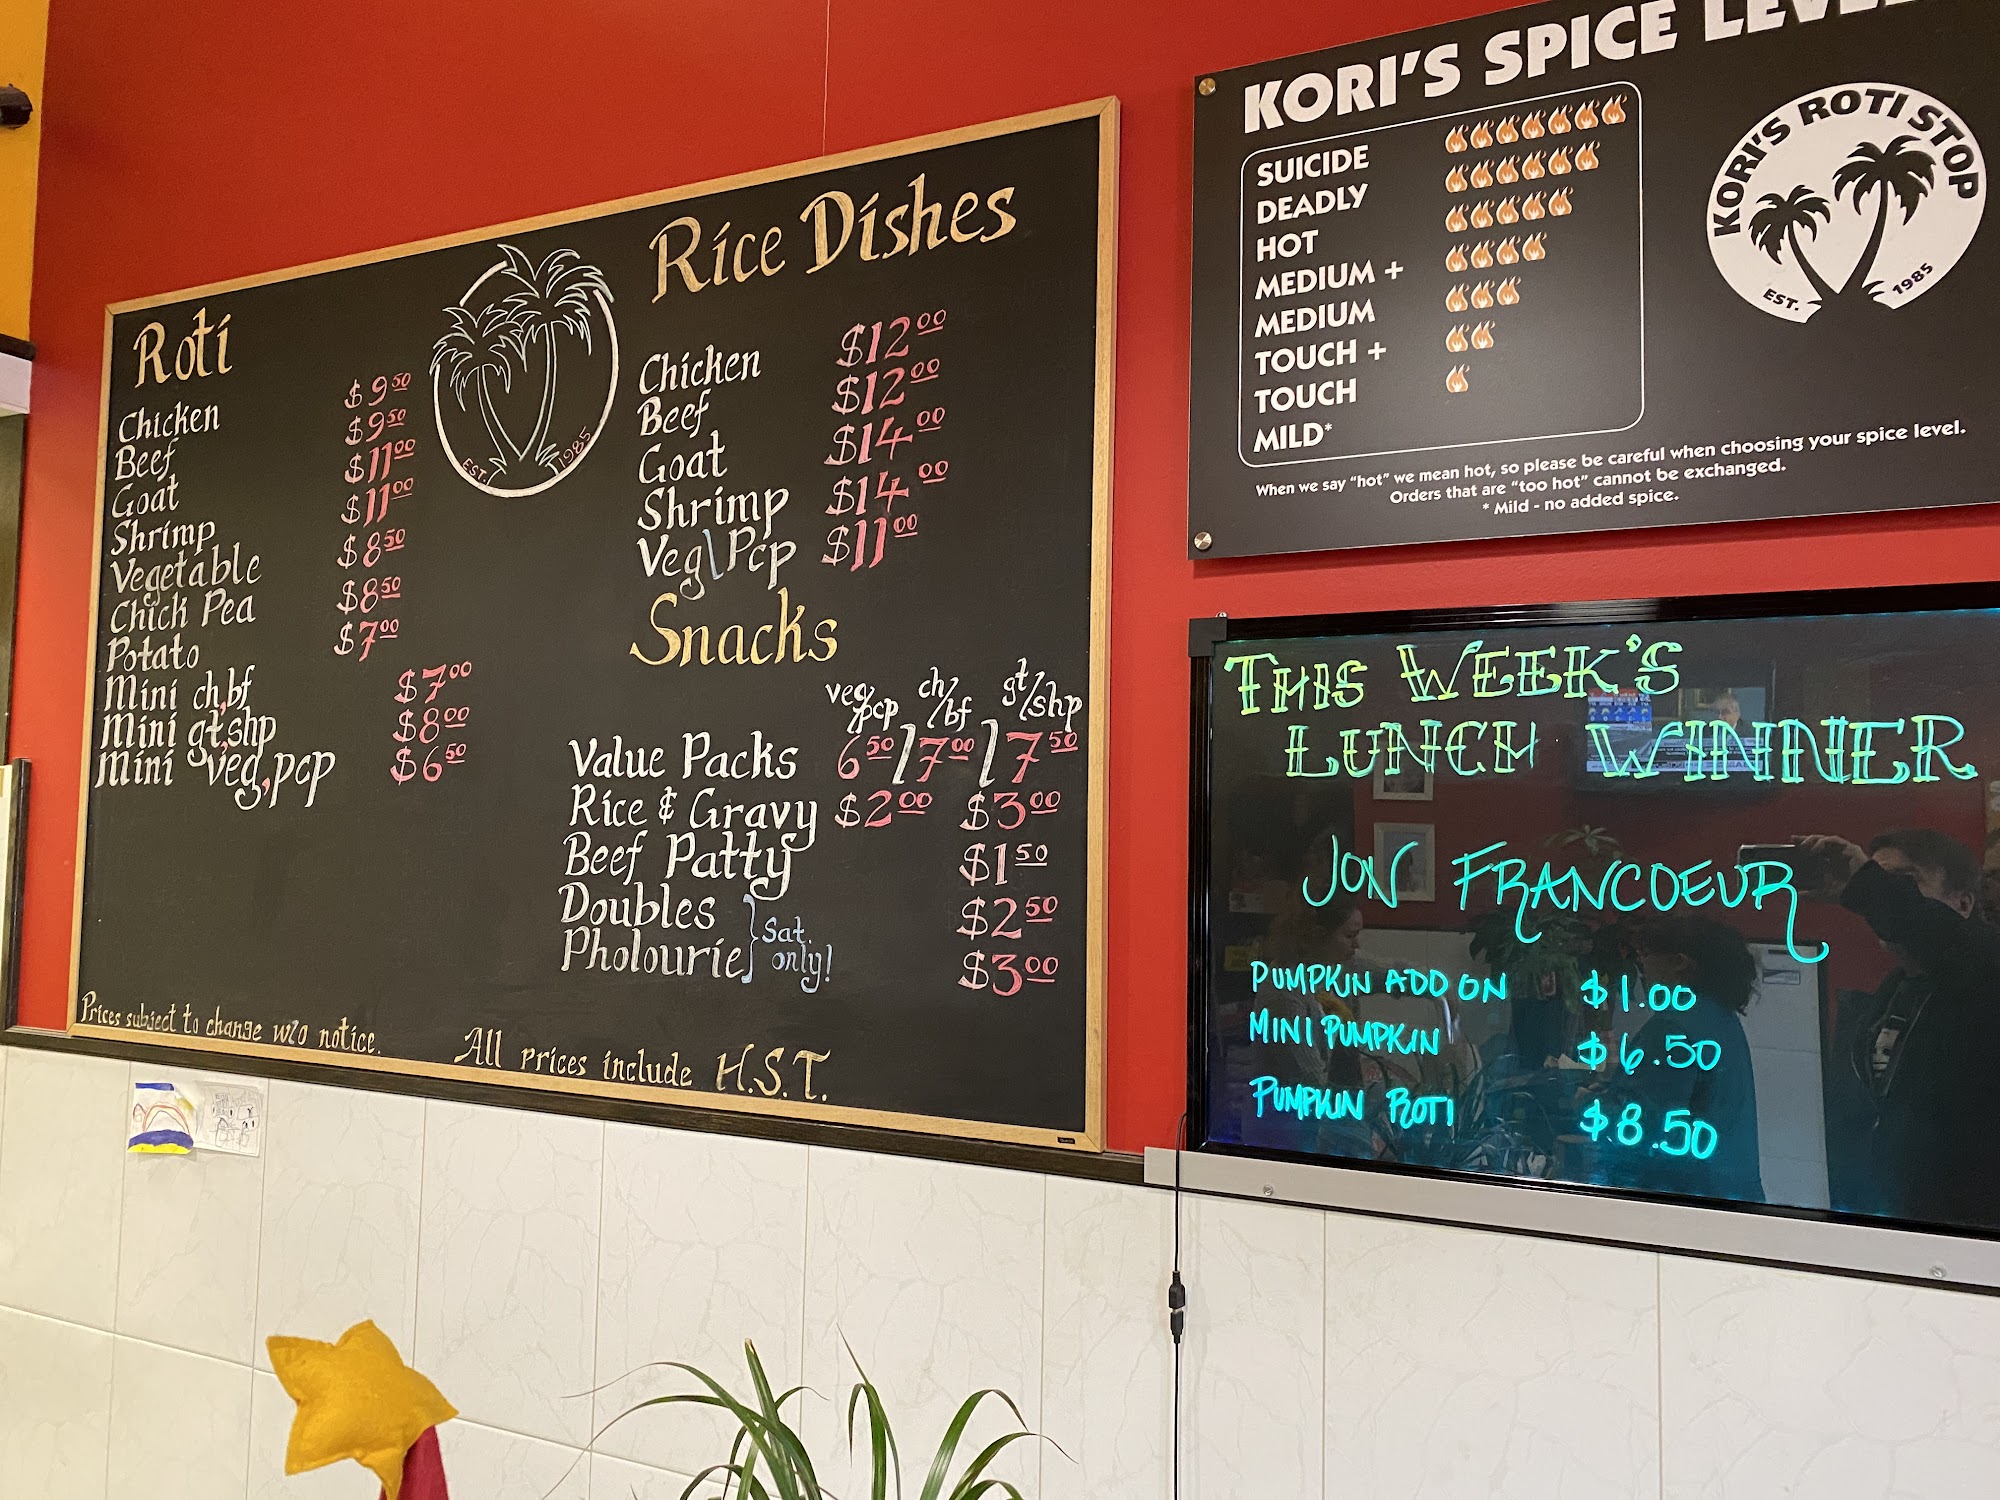 Roti
Chicken $9.50
Beef $9.50
Goat $11.00
Shrimp $11.00
Vegetable $8.50
Chick Pea $8.50
Potato $7.00
Mini ch,bf $7.00
Mini gt,shp $8.00
Mini veg,pcp $6.50
EST. 1985
Rice Dishes
Chicken $12.00
Beef $12.00
Goat $14.00
Shrimp $14.00
Veg\Pcp $11.00
Snacks
veg/pcp ch/bf gt/shp
Value Packs 6.50/7.00/7.50
Rice & Gravy $2.00 $3.00
Beef Patty $1.50
Doubles $2.50
Pholourie $3.00
Sat. only!
Prices subject to change w/o notice.
All prices include H.S.T.
KORI'S SPICE LEVEL
SUICIDE
DEADLY
HOT
MEDIUM +
MEDIUM
TOUCH +
TOUCH
MILD*
When we say "hot" we mean hot, so please be careful when choosing your spice level.
Orders that are "too hot" cannot be exchanged.
* Mild - no added spice.
KORI'S ROTI STOP
EST. 1985
THIS WEEK'S
LUNCH WINNER
JON FRANCOEUR
PUMPKIN ADD ON $1.00
MINI PUMPKIN $6.50
PUMPKIN ROTI $8.50